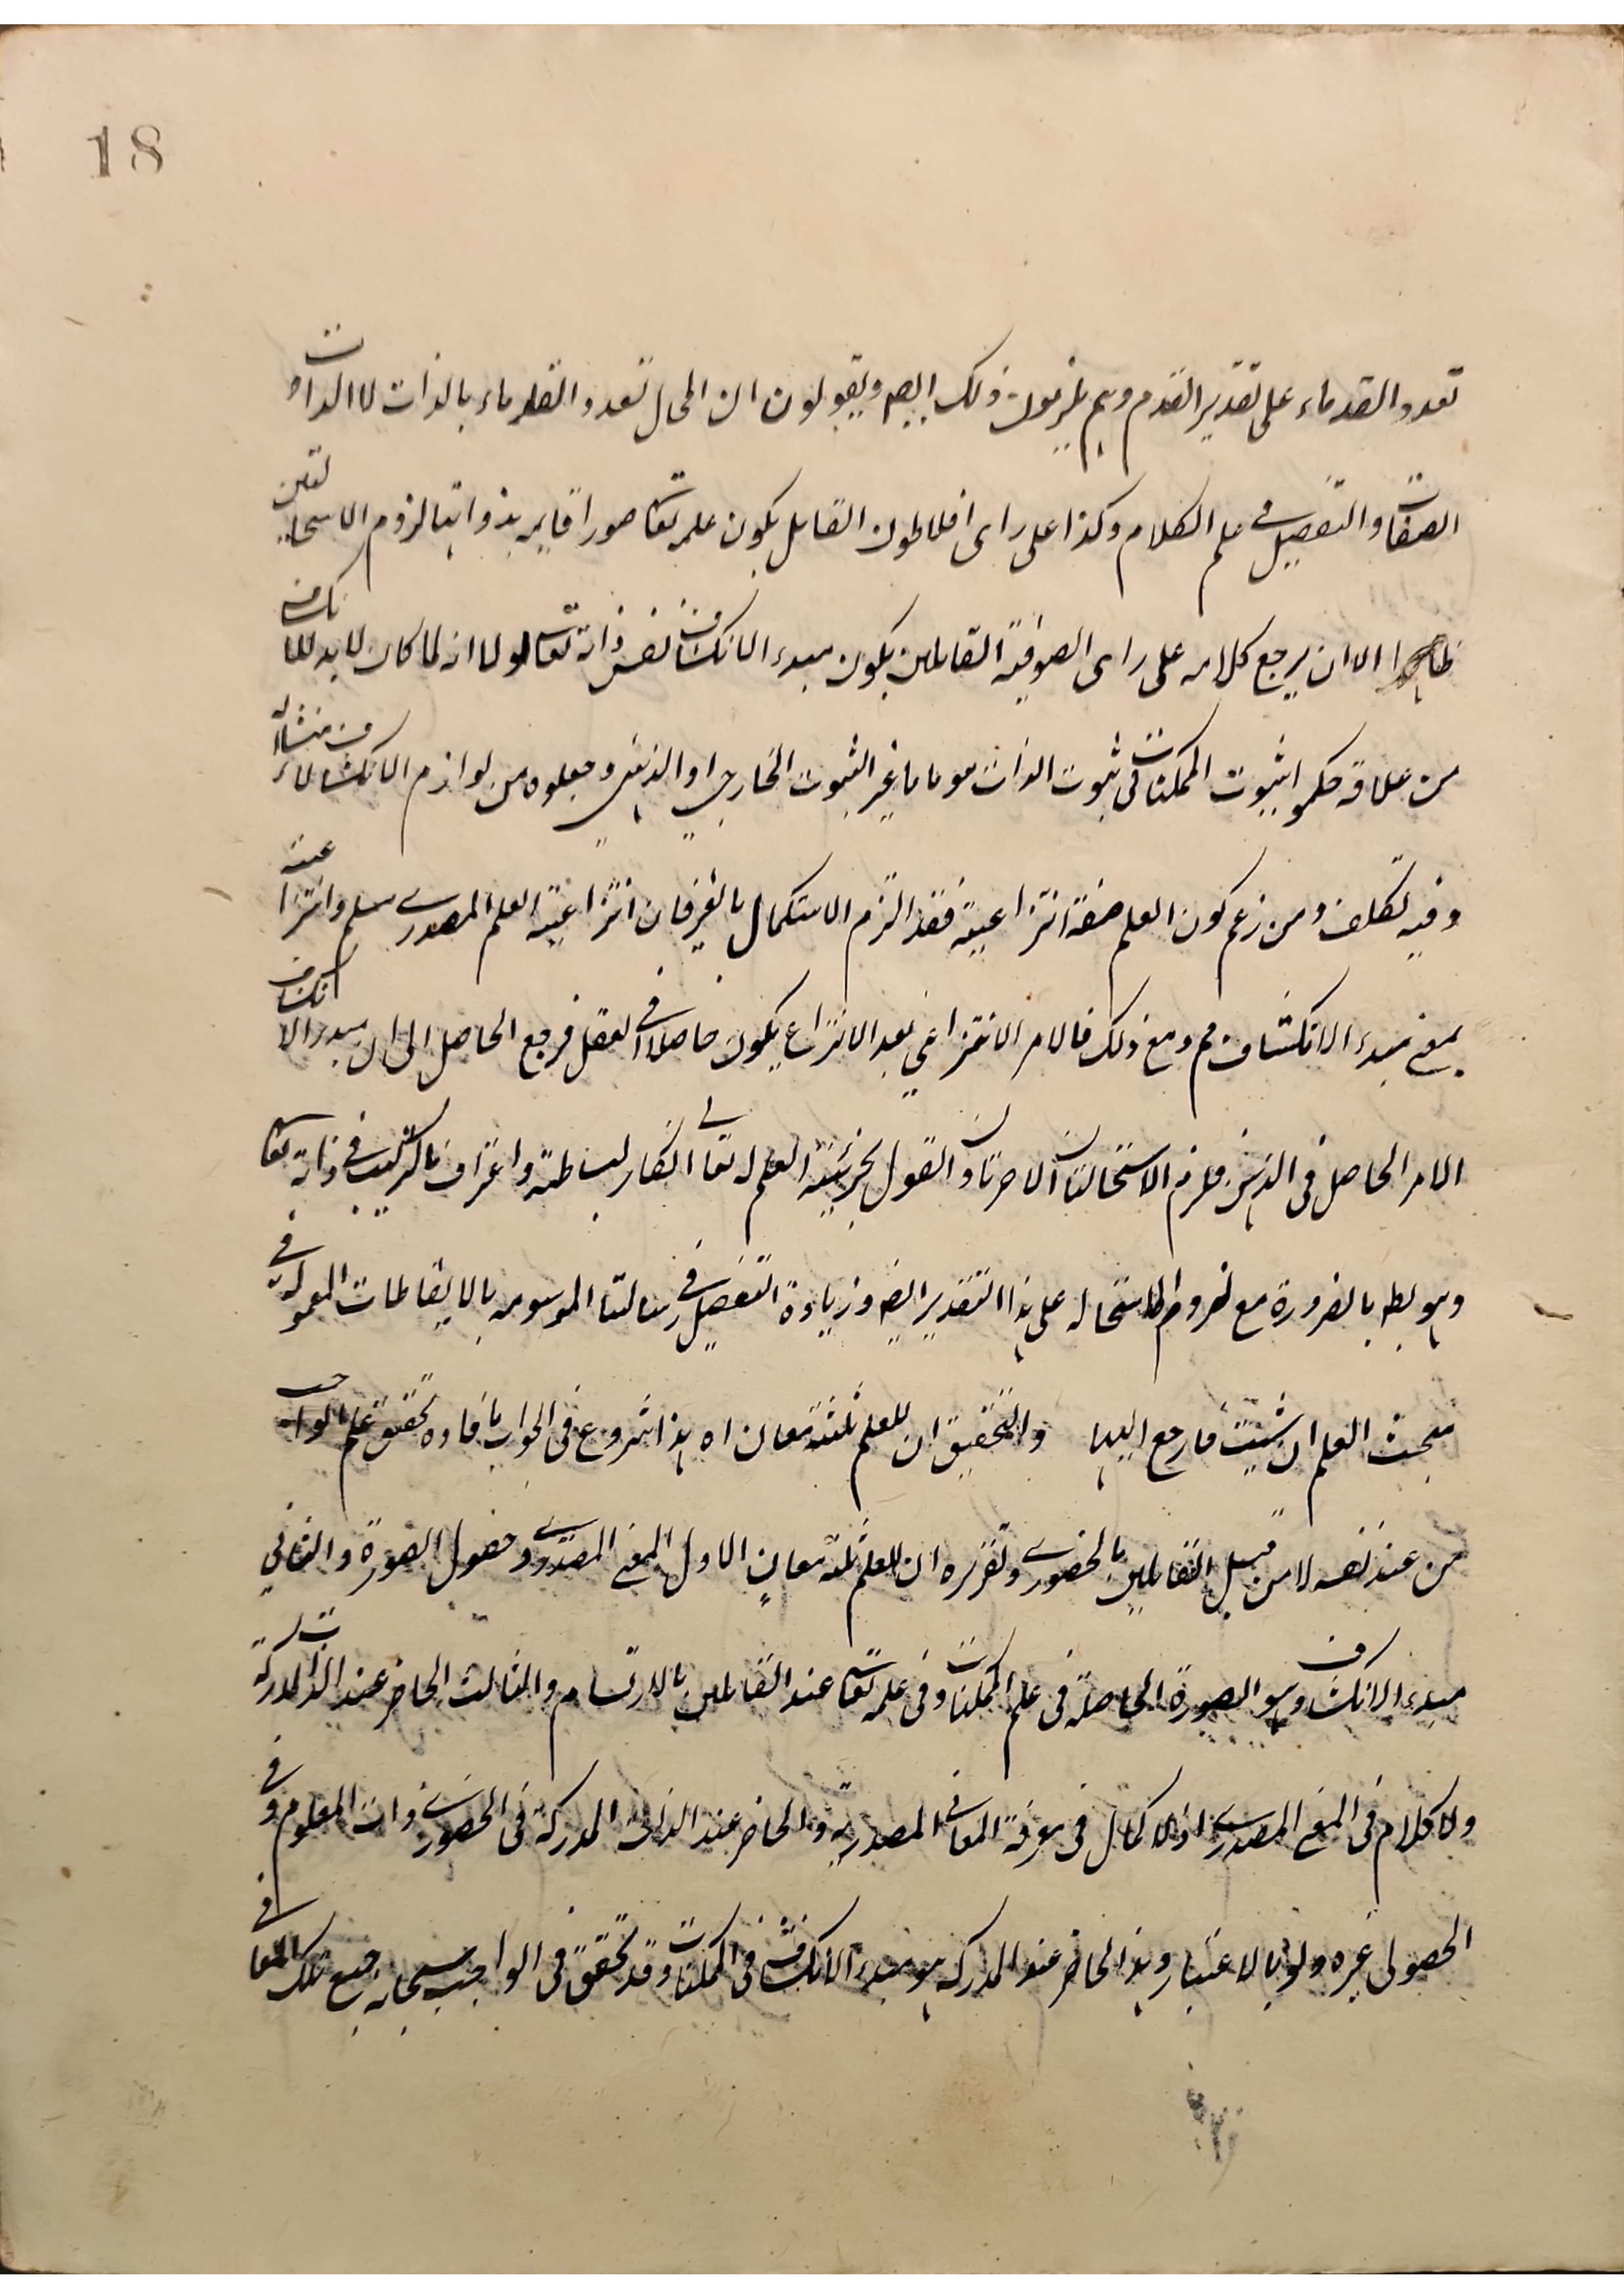 18
تعدد القدماء على تقدير القدم وهم يلزمون ذلك ايضه ويقولون ان المحال تعدد القدماء بالذات لا الذات و
الصفات والتفصيل في علم الكلام وكذا على راى افلاطون القايل بكون علمه تعا صورا قايمه بذواتها لزوم الاستحالتين
ظاهرا الا ان يرجع كلامه على راى الصوفية القايلين بكون مبدء الانكشاف نفس ذاته تعالى ولما انه لما كان لا بد للانكشاف
من علاقة حكموا بثبوت الممكنات في ثبوت الذات هو ما يغير الثبوت الخارجي او الذهني وجعلوه من لوازم الانكشاف لا منشاؤه
وفيه تكلف ومن زعم كون العلم صفة انتزاعية فقد التزم الاستكمال بالغير فان انتزاعية العلم المصدرے مسلم وانتزاعيته
بمعنى مبدء الانكشاف مم ومع ذلك فالامر الانتزاعي بعد الانتزاع يكون حاصلا في العقل فرجع الحاصل الى ان مبدء الانكشاف
الامر الحاصل في الذهن فلزم الاستحالتان الاخرتان والقول بجزئية العلم له تعالى انكار لبساطته واعتراف بالتركيب في ذاته تعا
وهو بط بالضرورة مع لزوم الاستحاله على هذا التقدير ايضه وزيادة التفصيل في رسالتنا الموسومه بالايقاظات المعموله في
مبحث العلم ان شيت فارجع اليها والتحقيق ان للعلم ثلثة معان اه هذا شروع في الجواب بافاده تحقيق علم الواجب
من عند نفسه لا من قبل القايلين بالحضورے وتقريره ان للعلم ثلثة معانٍ الاول المعنى المصدرے وحصول الصورة والثاني
مبدء الانكشاف وهو الصورة الحاصلة في علم الممكنات وفي علمه تعا عند القايلين بالارتسام والثالث الحاضر عند الذات المدركة
ولا كلام في المعنى المصدرے اذ لا كمال في معرفة المعاني المصدريه والحاضر عند الذات المدركة في الحضورے ذات المعلوم وفي
الحصولى غيره ولو بالاعتبار وهذا الحاضر عند المدركه هو مبدء الانكشاف في الممكنات وقد تحقق في الواجب سبحانه جميع تلك المعاني